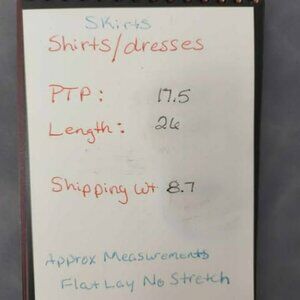 Skirts
Shirts/dresses
PTP: 17.5
Length: 26
Shipping wt 8.7
Approx Measurements
Flat Lay No Stretch